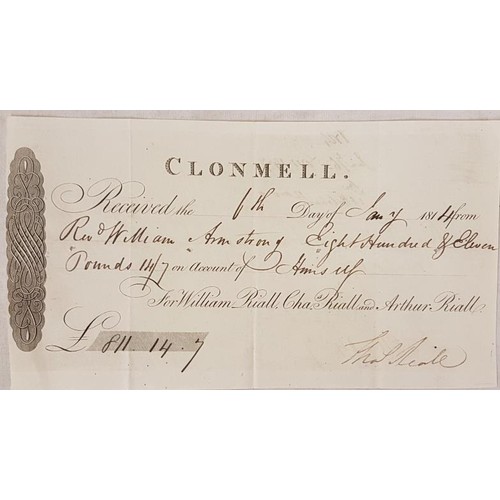 CLONMELL.
Received the 6th Day of Jany 1814 from
Revd William Armstrong Eight Hundred & Eleven
Pounds 14/7 on Account of Himself
For William Riall, Cha. Riall and Arthur Riall.
£ 811.14.7
Thos Riall